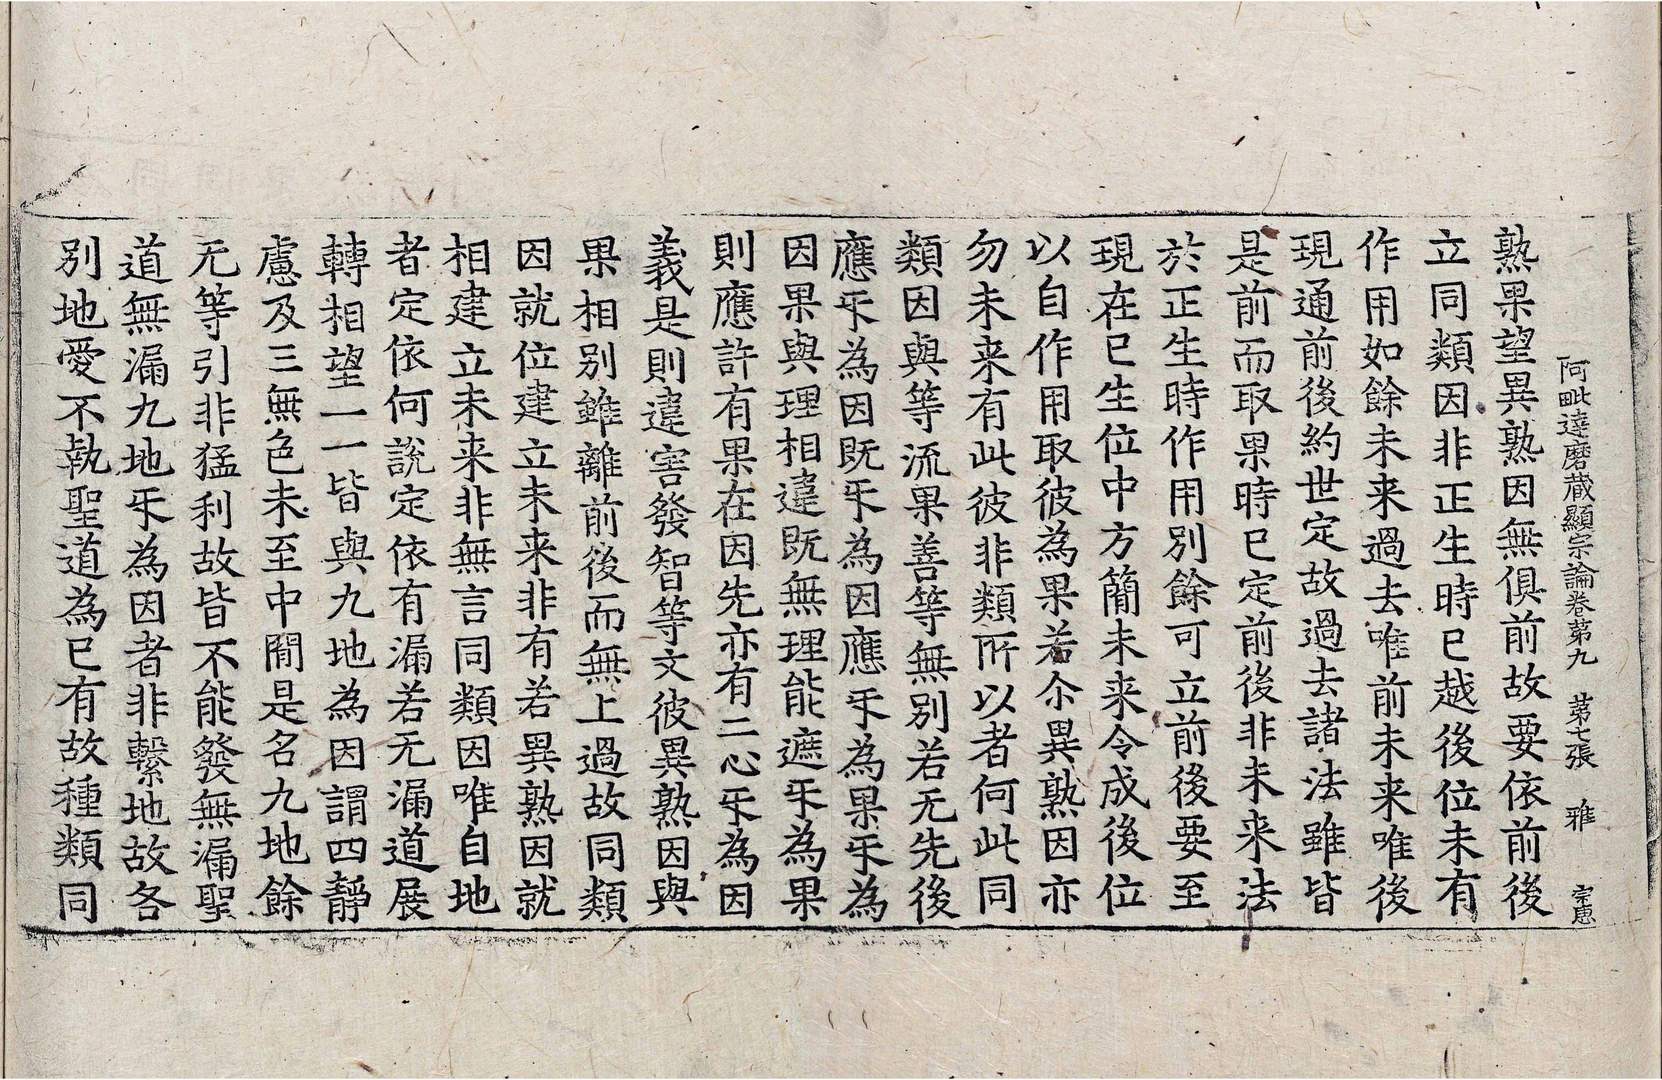 阿毗達磨藏顯宗論卷第九 第七張 雅 宗惠
熟果望異熟因無俱前故要依前後
立同類因非正生時已越後位未有
作用如餘未来過去唯前未来唯後
現通前後約世定故過去諸法雖皆
是前而取果時已定前後非未来法
於正生時作用別餘可立前後要至
現在已生位中方簡未来令成後位
以自作用取彼為果若尒異熟因亦
勿未来有此彼非類所以者何此同
類因與等流果善等無別若无先後
應㸦為因既㸦為因應㸦為果㸦為
因果與理相違既無理能遮㸦為果
則應許有果在因先亦有二心㸦為因
義是則違害發智等文彼異熟因與
果相別雖離前後而無上過故同類
因就位建立未来非有若異熟因就
相建立未来非無言同類因唯自地
者定依何說定依有漏若无漏道展
轉相望一一皆與九地為因謂四靜
慮及三無色未至中閒是名九地餘
无等引非猛利故皆不能發無漏聖
道無漏九地㸦為因者非繫地故各
別地愛不執聖道為已有故種類同